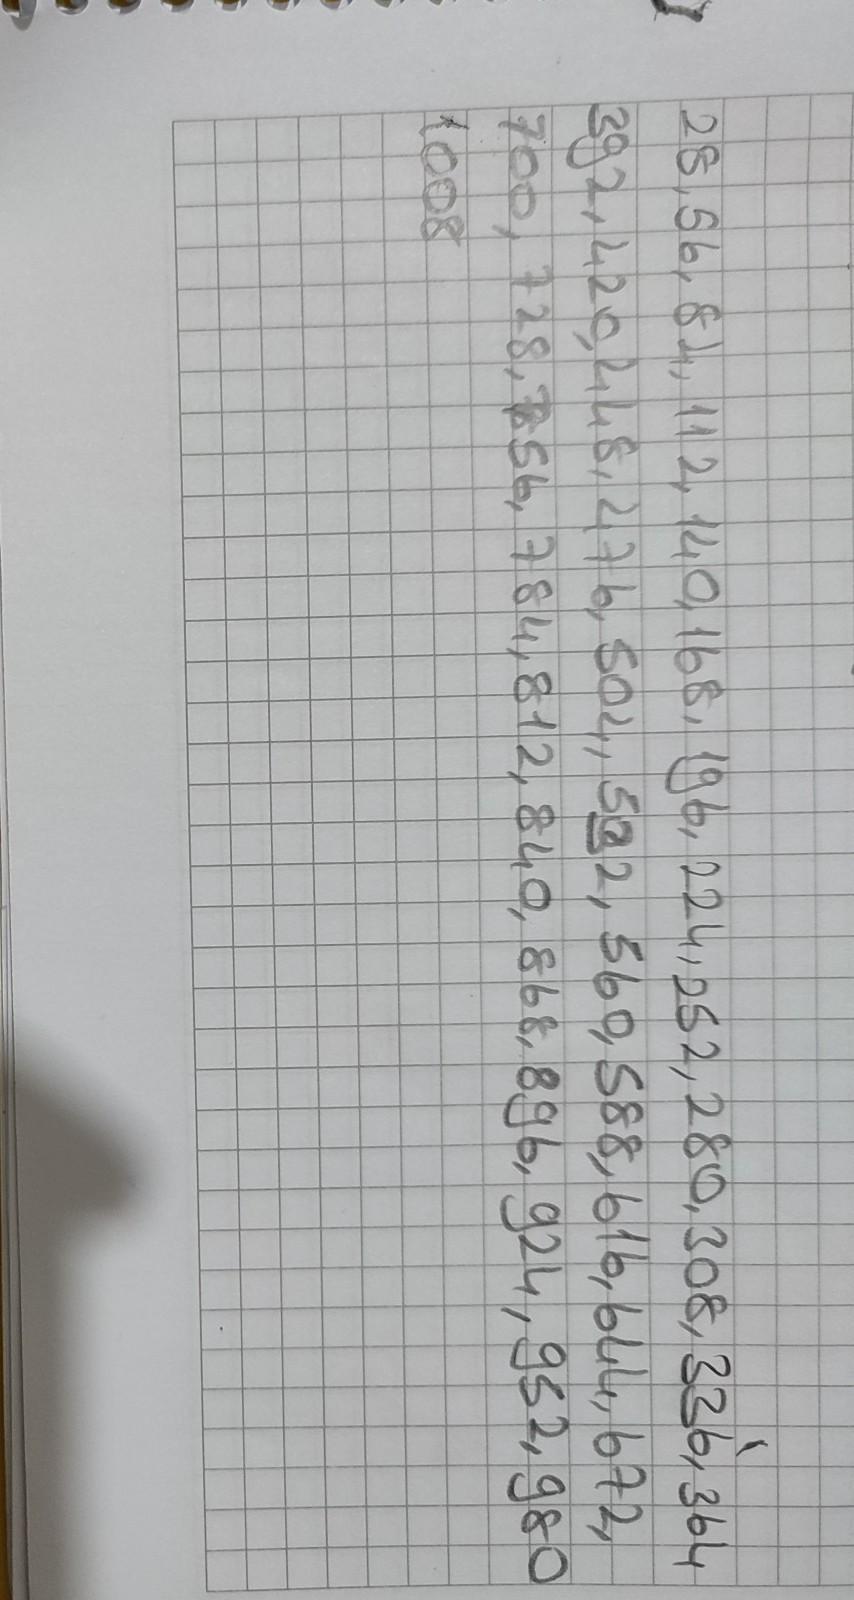 28, 56, 84, 112, 140, 168, 196, 224, 252, 280, 308, 336, 364
392, 420, 448, 476, 504, 532, 560, 588, 616, 644, 672,
700, 728, 756, 784, 812, 840, 868, 896, 924, 952, 980
1008